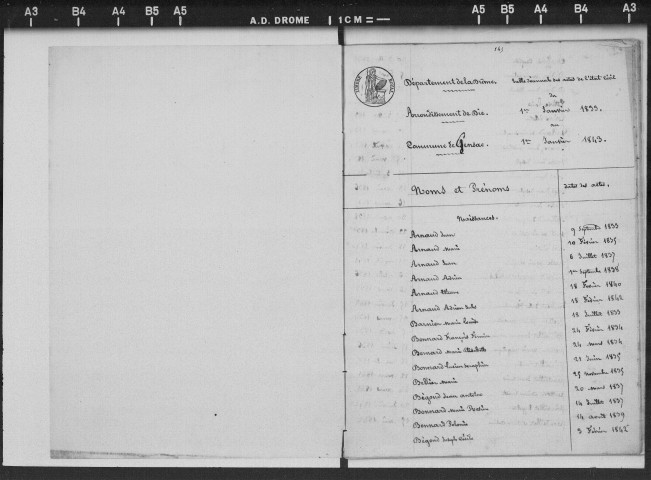 A3 B4 A4 B5 A5 A.D. DROME 1 CM A5 B5 A4 B4 A3
Département de la Drôme
Table décennale des actes de l'État Civil
du
Arrondissement de Die.
1er Janvier 1833.
au
Commune de Gensac.
1er Janvier 1843.
Noms et Prénoms
Dates des actes.
Naissances.
Arnaud Jean 9 Septembre 1833
Arnaud Marie 10 Février 1835
Arnaud Jean 6 Juillet 1837
Arnaud Adrien 1er Septembre 1838
Arnaud 18 Février 1840
Arnaud Adrien 18 Février 1842
Barnier Marie 13 Juillet 1833
Bonnard François Firmin 24 Février 1834
Bernard Marie Elisabeth 24 mars 1834
Bonnard Lucien Seraphin 21 Juin 1835
Marie 25 novembre 1835
Bégoud Jean Antoine 20 mars 1837
Bonnard Marie Rosine 14 Juillet 1837
Bonnard 14 août 1839
Bégoud Joseph 3 Février 1842